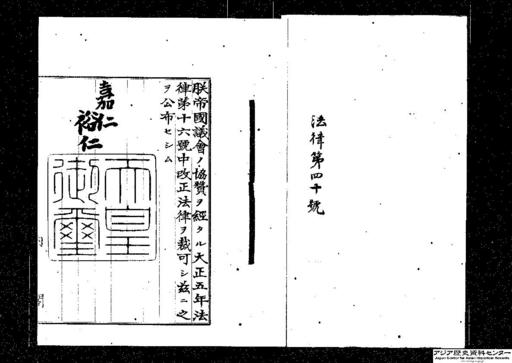 法律第四十號
朕帝國議會ノ協贊ヲ經タル大正五年法
律第十六號中改正法律ヲ裁可シ茲ニ之
ヲ公布セシム
嘉仁
裕仁
天皇
御璽
内 閣
アジア歴史資料センター
Japan Center for Asian Historical Records